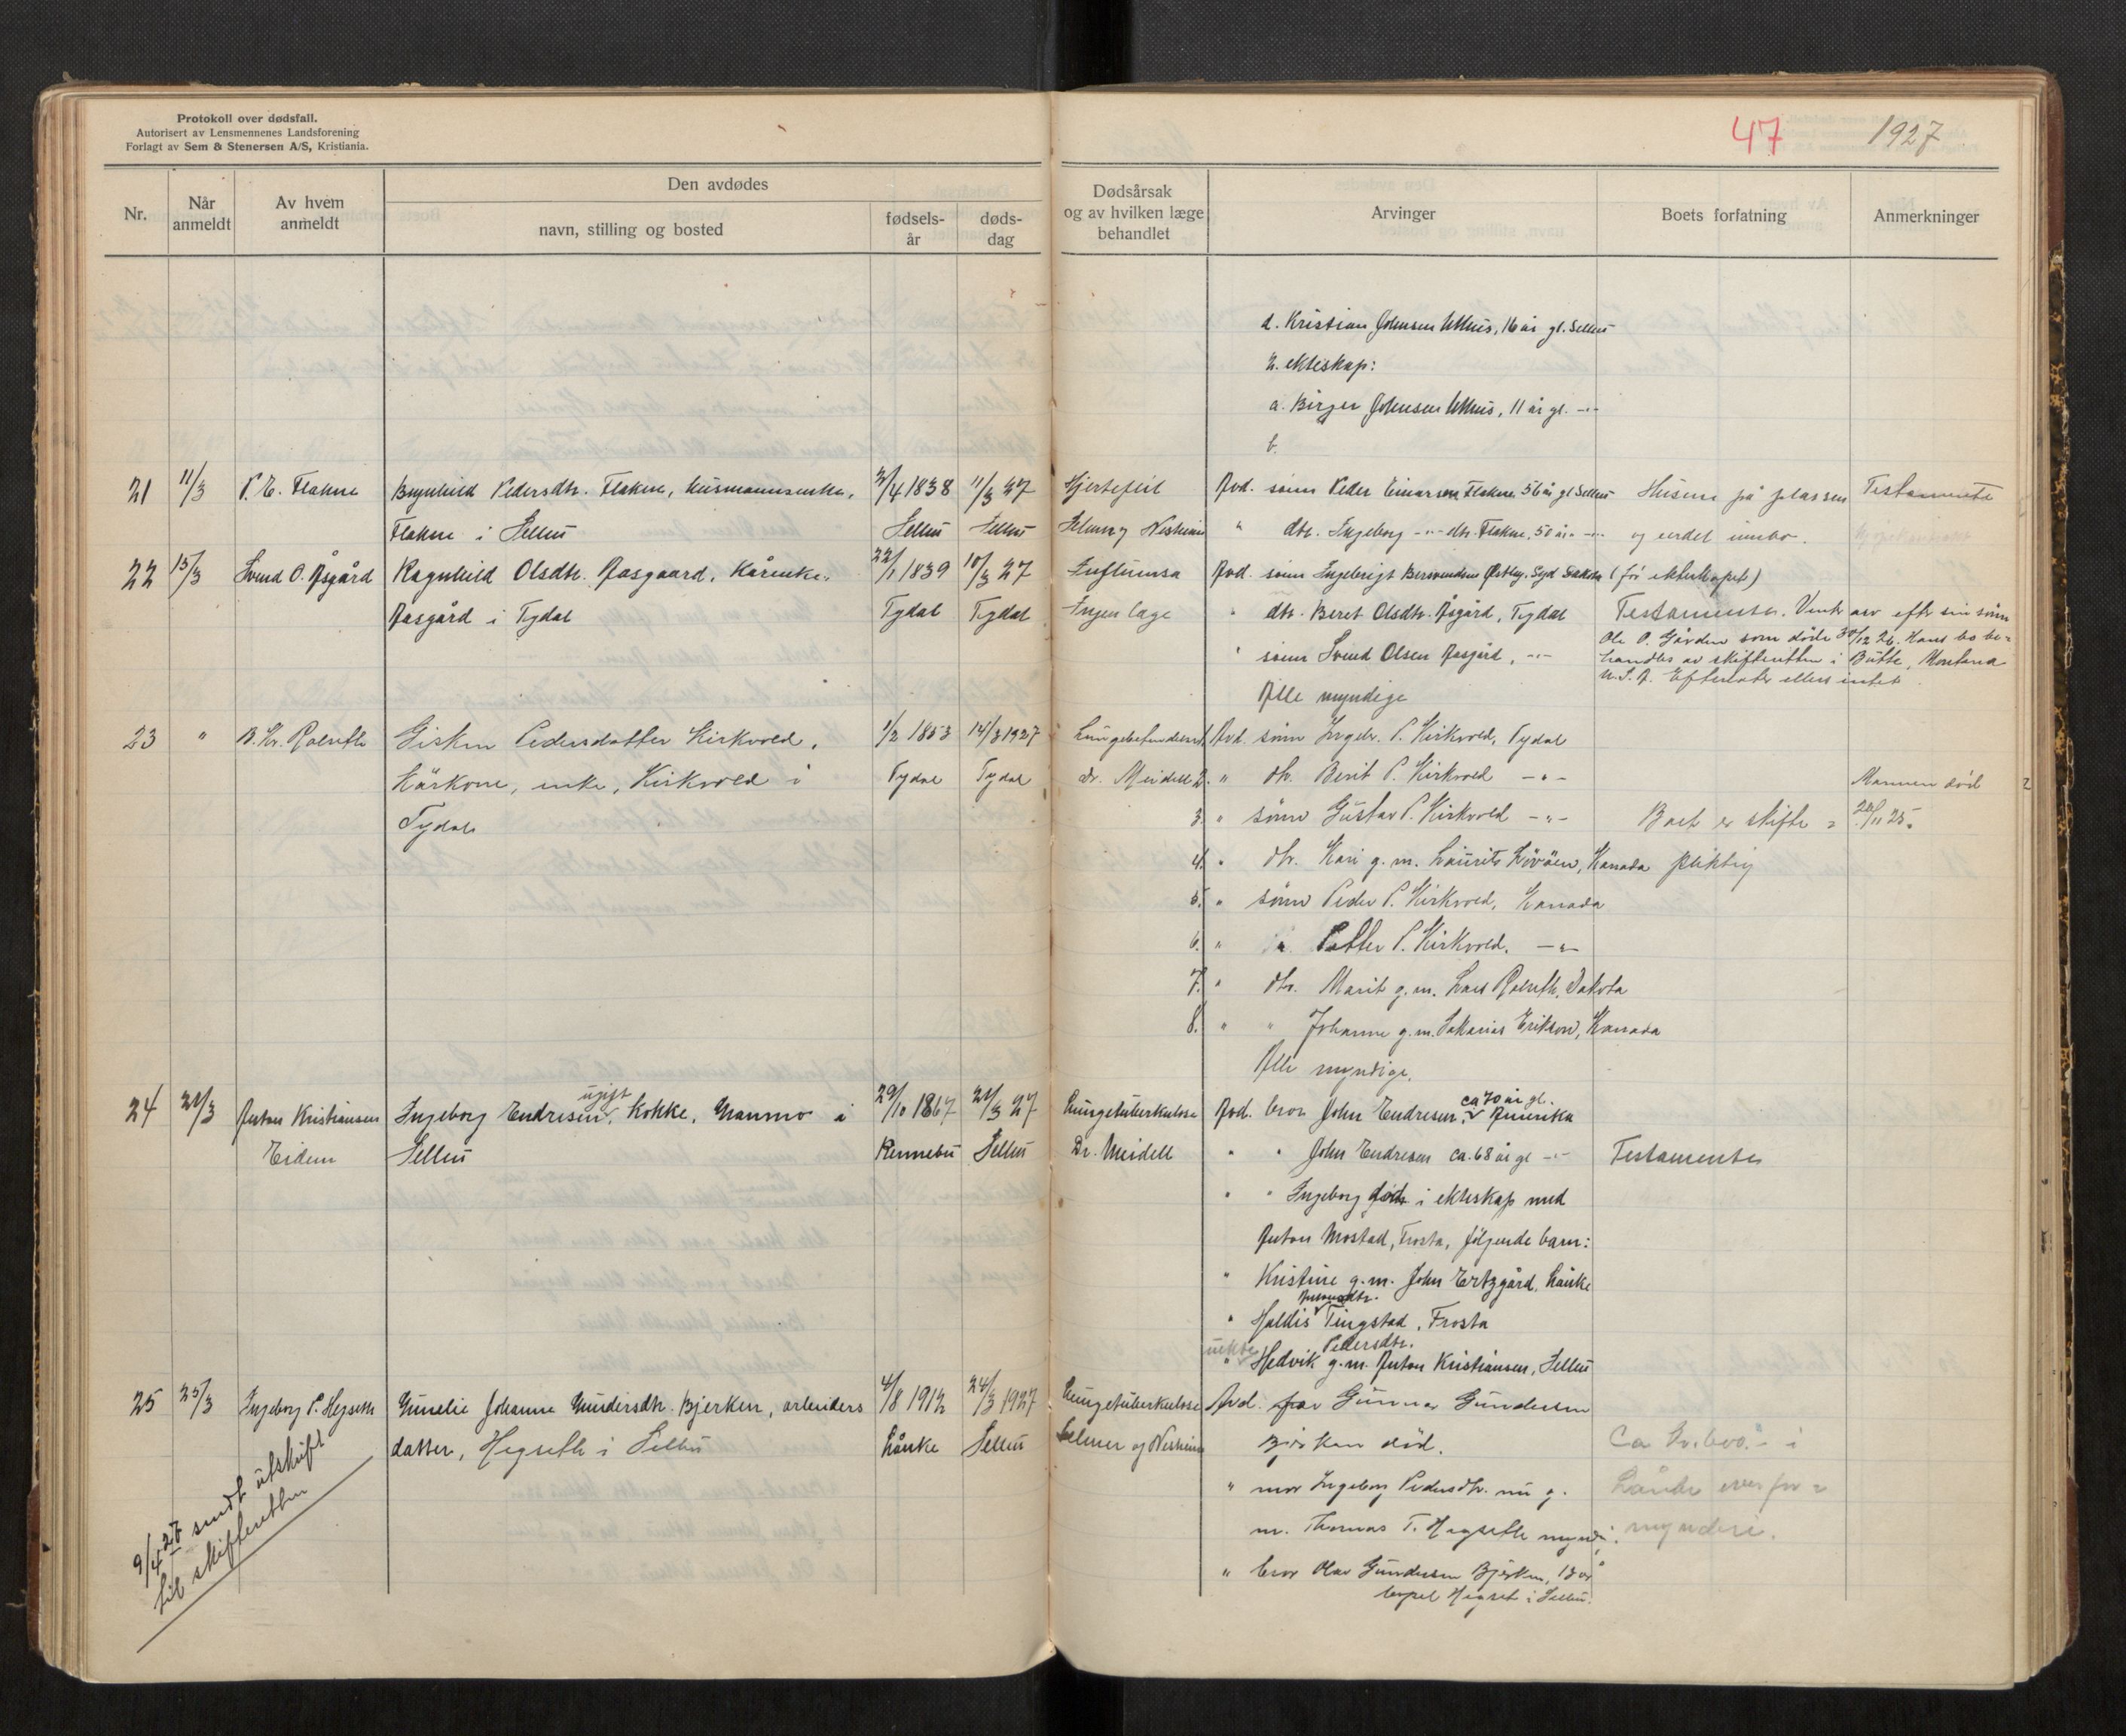 Protokoll over dødsfall.
Autorisert av Lensmennenes Landsforening
Forlagt av Sem & Stenersen A/S, Kristiania.
47 1927
Nr.
Når anmeldt
Av hvem anmeldt
Den avdødes
navn, stilling og bosted
fødselsår
dødsdag
Dødsårsak og av hvilken læge behandlet
Arvinger
Boets forfatning
Anmerkninger
d. Kristian Johnsen Uthus, 16 år gl. Selbu
2. ekteskap:
a. Birger Johnsen Uthus, 11 år gl. -"-
b.
21 11/3 P. E. Flakne Brynhild Pedersdtr. Flakne, husmannsenke, 2/4 1838 11/3 27 Hjertefeil Avd. sønn Peder Einarsen Flakne 56 år gl Selbu Husene på plassen Testamente
Flakne i Selbu Selbu Selbu Selmer og Nesheim " dtr. Ingeborg -"- dtr. Flakne, 50 år -"- og endel innbo.
22 15/3 Svend O. Åsgård Ragnhild Olsdtr. Aasgaard, Kårenke, 22/1 1839 10/3 27 Influensa Avd. sønn Ingebrigt Bersvendsen Østby, Syd Dakota (før ekteskapet)
Aasgård i Tydal Tydal Tydal Ingen læge " dtr. Beret Olsdtr. Åsgård, Tydal Testamenter. Venter arv efter sin sønn
" sønn Svend Olsen Aasgård, -"- Ole O. Gården som døde 30/12 26. Hans bo be-
handles av skifteretten i Butte, Montana
U. S. A. Efterlater ellers intet.
Alle myndige
23 " B. Kr. Rolseth Gisken Pedersdatter Kirkvold, 1/2 1853 14/3 1927 Lungebetendelse 1. Avd. sønn Ingebr. P. Kirkvold, Tydal
Kårkone, enke, Kirkvold i Tydal Tydal dr. Meidell 2. " dtr. Berit P. Kirkvold -"- Mannen død
Tydal 3. " sønn Gustav P. Kirkvold -"- Boet er skifte- 28/11 25.
4. " dtr. Kari g. m. Laurits Løvøen, Kanada pliktig
5. " sønn Peder P. Kirkvold, Kanada
6. " " Petter P. Kirkvold, -"-
7. " dtr. Marit g. m. Lars Rolseth, Dakota
8. " " Johanne g. m. Sakarias Erikson, Kanada
Alle myndige.
24 21/3 Anton Kristiansen Ingeborg Endresen, ugift Kokke, Mannmo i 29/10 1867 21/3 27 Lungetuberkulose Avd. bror John Endresen, ca 70 år gl. Amerika
Eidem Selbu Rennebu Selbu Dr. Meidell " " John Endresen ca. 68 år gl -"- Testamenter
" " Ingeborg døde i ekteskap med
Anton Mostad, Frosta, følgende barn:
" Kristine g. m. John Ertzgård, Lånke
" Haldis Antonsdtr. Tingstad, Frosta
uekte " Hedvik Pedersdtr. g. m. Anton Kristiansen, Selbu
25 25/3 Ingeborg P. Hegseth Gunelie Johanne Gundersdtr. Bjerken, arbeiders 4/8 1912 24/3 1927 Lungetuberkulose Avd. far Gunnar Gundersen
datter, Hegseth i Selbu Lånke Selbu Selmer og Nesheim Bjerken død. Ca kr. 600.- i
" mor Ingeborg Pedersdtr. nu g. Lånke overfor-
m. Thomas T. Hegseth myndig. mynderi.
" bror Olav Gundersen Bjerken, 13 år
bopel Hegset i Selbu.
9/4 27 sendt utskrift
til skifteretten